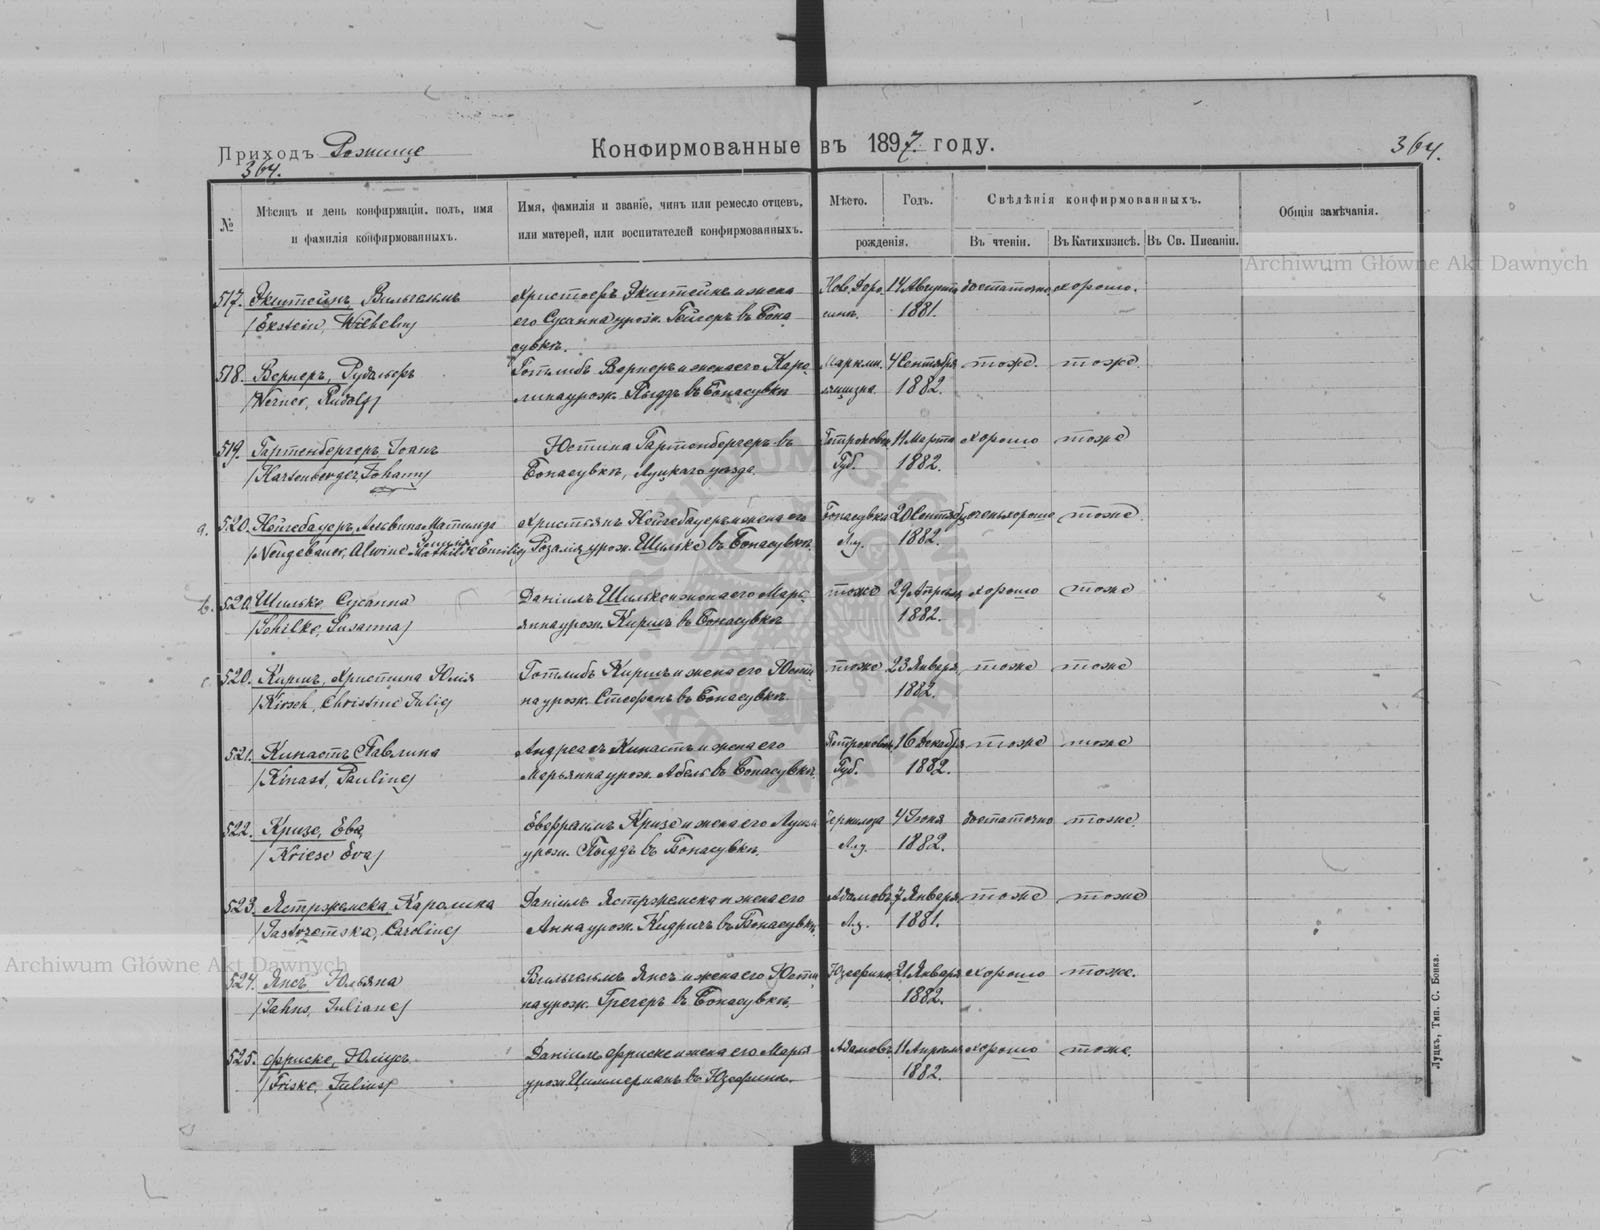 Приходъ Рожище
Конфирмованные въ 1897. году.
364.
364.
№
Мѣсяцъ и день конфирмаціи, полъ, имя
и фамилія конфирмованныхъ.
Имя, фамилія и званіе, чинъ или ремесло отцевъ,
или матерей, или воспитателей конфирмованныхъ.
Мѣсто.
Годъ.
рожденія.
Свѣдѣнія конфирмованныхъ.
Въ чтеніи.
Въ Катихизисѣ.
Въ Св. Писаніи.
Общія замѣчанія.
517. Экштейнъ Вильгельмъ
/Ekstein, Wilhelm/
Христофъ Экштейнъ и жена
его Сусанна урож. Гейгеръ въ Бона
сувкѣ.
14 Августа
1881.
достаточно
хорошо.
518. Вернеръ, Рудольфъ
/Werner, Rudolf/
Готлибъ Вернеръ и жена его Каро
лина урож. Пыддъ въ Бонасувкѣ
4 Сентября
1882.
тоже.
тоже.
519. Гартенбергеръ Іоанъ
/Hartenberger, Johann/
Юстина Гартенбергеръ въ
Бонасувкѣ, Луцкаго уѣзда.
Петроковск.
Губ.
11 Марта
1882.
хорошо
тоже
a. 520. Нейгебауеръ, Альвина Матильда
Эмилія
/Neugebauer, Alwine Mathilde Emilie/
Христьянъ Нейгебауеръ и жена его
Розалія урож. Шильке въ Бонасувкѣ
Бонасувка
Лу.
20 Сентября
1882.
очень хорошо
тоже
b. 520. Шильке Сусанна
/Schilke, Susanna/
Даніилъ Шильке и жена его Марь
янна урож. Киршъ въ Бонасувкѣ
тоже
29 Апрѣля
1882.
хорошо
тоже
c. 520. Киршъ, Христина Юлія
/Kirsch, Christine Julie/
Готлибъ Киршъ и жена его Юсти
на урож. Стефанъ въ Бонасувкѣ
тоже
23 Января
1882.
тоже
тоже
521. Кинастъ Павлина
/Kinast, Pauline/
Андреасъ Кинастъ и жена его
Марьянна урож. Абель въ Бонасувкѣ.
Петроковск.
Губ.
16 Декабря
1882.
тоже
тоже
522. Кризе, Ева,
/Kriese Eva/
Евфраимъ Кризе и жена его Луиза
урож. Пыддъ въ Бонасувкѣ.
Лу.
4 Іюня
1882.
достаточно
тоже.
523. Ястржемска, Каролина
/Jastrzemska, Caroline/
Даніилъ Ястржемска и жена его
Анна урож. Кидричъ въ Бонасувкѣ.
Адамовъ
Лу.
7 Января
1881.
тоже
тоже
524. Янсъ, Юльяна
/Jahns, Juliane/
Вильгельмъ Янсъ и жена его Юсти
на урож. Грегеръ въ Бонасувкѣ.
Юзефина
21 Января
1882.
хорошо
тоже.
525. Фриске, Юліусъ
/Friske, Julius/
Даніилъ Фриске и жена его Марія
урож. Циммерманъ въ Юзефинѣ.
Адамовъ
11 Апрѣля
1882.
хорошо
тоже.
Луцкъ, Тип. С. Бонка.
Archiwum Główne Akt Dawnych
Archiwum Główne Akt Dawnych